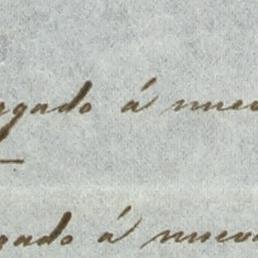 rgado á nuev
gado á nuev